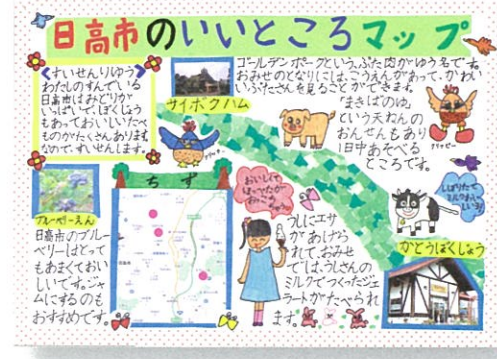 日高市のいいところマップ
<すいせんりゆう>
わたしのすんでいる
日高市はみどりが
いっぱいで、ぼくじょう
もあっておいしいたべ
ものがたくさんあります
なので、すいせんします。
サイボクハム
ゴールデンポークという、ぶた肉がゆう名です。
おみせのとなりには、こうえんがあって、かわい
いぶたさんを見ることができます。
「まきばのゆ」
という天ねんの
おんせんもあり
1日中あそべる
ところです。
ブルーベリーえん
日高市のブルー
ベリーはとって
もあまくておい
しいです。ジャ
ムにするのも
おすすめです。
ちず
おいしくて
ほっぺたが
おっこち
しぼりたて
かとうぼくじょう
うしにエサ
があげら
れて、おみせ
では、うしさんの
ミルクでつくったジェ
ラートがたべられ
ます。